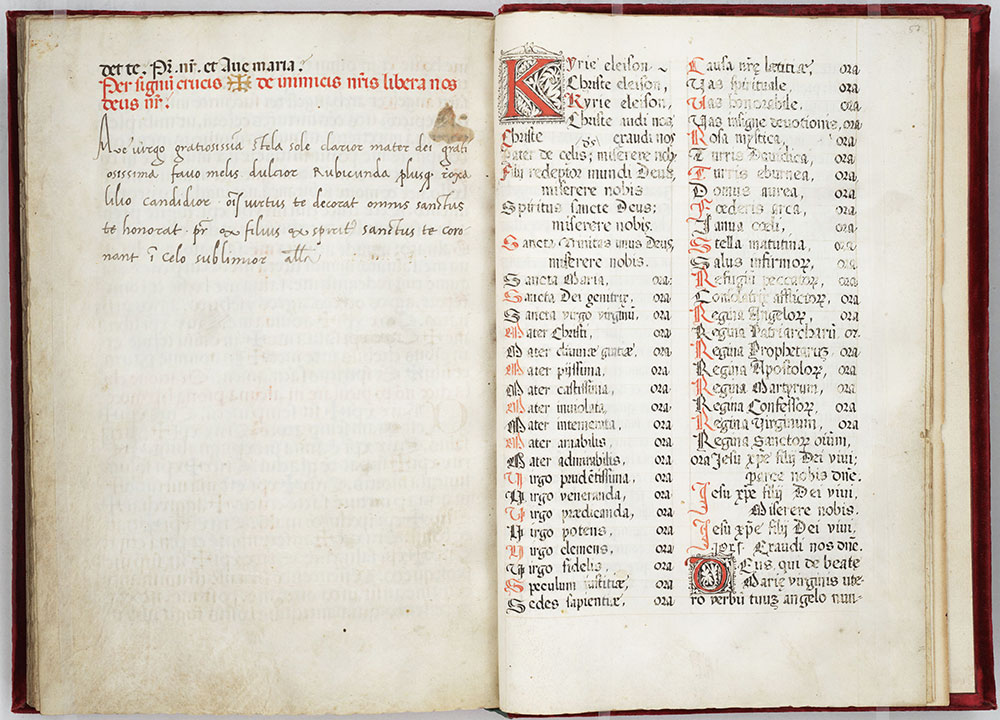 det te. Pr̄. nr̄. et Aue maria.
Per signū crucis ✠ de inimicis nr̄is libera nos
deus nr̄.
Ave virgo gratiosissīa stela sole clarior mater dei grati
osissima favo melis dulcior Rubicunda plusq̄ roxa
lilio candidior. oīs virtus te decorat omnis sanctus
te honorat. pr̄ & filius & spirit᷒ sanctus te coro-
nant ī celo sublimior all̄a
57
Kyrie eleison.
Christe eleison,
Kyrie eleison,
Christe audi nos
Christe exaudi nos
Pater de celis; miserere nob
Fili redemptor mundi Deus,
miserere nobis
Spiritus sancte Deus;
miserere nobis.
Sancta Trinitas unus Deus,
miserere nobis.
Sancta Maria, ora
Sancta Dei genitrix, ora
Sancta virgo virginū, ora
Mater Christi, ora
Mater diuinæ gratiæ, ora
Mater pijssima, ora
Mater castissima, ora
Mater inuiolata, ora
Mater intemerata, ora
Mater amabilis, ora
Mater admirabilis, ora
Virgo prudētissima, ora
Virgo veneranda, ora
Virgo prædicanda, ora
Virgo potens, ora
Virgo clemens, ora
Virgo fidelis, ora
Speculum iustitiæ, ora
Sedes sapientiæ, ora
Causa nr̄e lætitiæ, ora
Vas spirituale, ora
Vas honorabile, ora
Vas insigne deuotionis, ora
Rosa mystica, ora
Turris Dauidica, ora
Turris eburnea, ora
Domus aurea, ora
Fœderis arca, ora
Ianua cœli, ora
Stella matutina, ora
Salus infirmoꝝ, ora
Refugiū peccatoꝝ, ora
Consolatrix afflictoꝝ, ora
Regina Angeloꝝ, ora
Regina Patriarcharū or.
Regina Prophetarum, ora
Regina Apostoloꝝ, ora
Regina Martyrum, ora
Regina Confessoꝝ, ora
Regina Virginum, ora
Regina Sanctoꝝ oīum,
ora Jesu xp̄e filij Dei viui;
parce nobis dn̄e.
Jesu xp̄e filij Dei viui,
Miserere nobis.
Jesu xp̄e filij Dei viui,
Exaudi nos dn̄e.
Deus, qui de beate
Marię virginis ute-
ro verbū tuuz angelo nun-